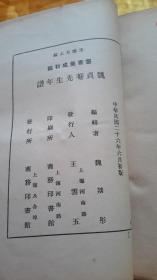 中華民國二十六年六月初版
叢書集成初編
魏貞菴先生年譜
編輯者 魏荔彤
發行人 王雲五
上海河南路
印刷所 商務印書館
上海河南路
發行所 商務印書館
上海及各埠